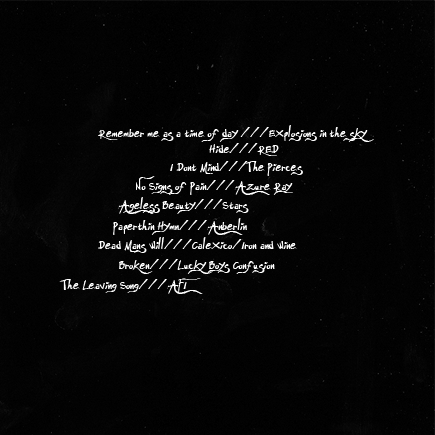 Remember me as a time of day///Explosions in the sky
Hide///RED
I Dont Mind///The Pierces
No Signs of Pain///Azure Ray
Ageless Beauty///Stars
Paperthin Hymn///Anberlin
Dead Mans Will///Calexico/Iron and Wine
Broken///Lucky Boys Confusion
The Leaving Song///AFI